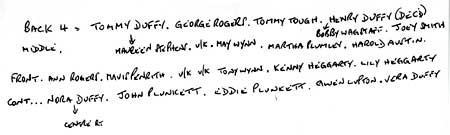 BACK 4 = TOMMY DUFFY. GEORGE ROGERS. TOMMY TOUGH. HENRY DUFFY (DEC'D)
BOBBY WAGSTAFF. JOEY SMITH
MIDDLE. MAUREEN STEPHENS. U/K. MAY WYNN. MARTHA PLUMLEY. HAROLD AUSTIN.
FRONT. ANN ROGERS. MAVIS PENRITH. U/K U/K TONY WYNN. KENNY HEGGARTY. LILY HEGGARTY
CONT... NORA DUFFY. JOHN PLUNKETT. EDDIE PLUNKETT. GWEN LUPTON. VERA DUFFY
CENTRE